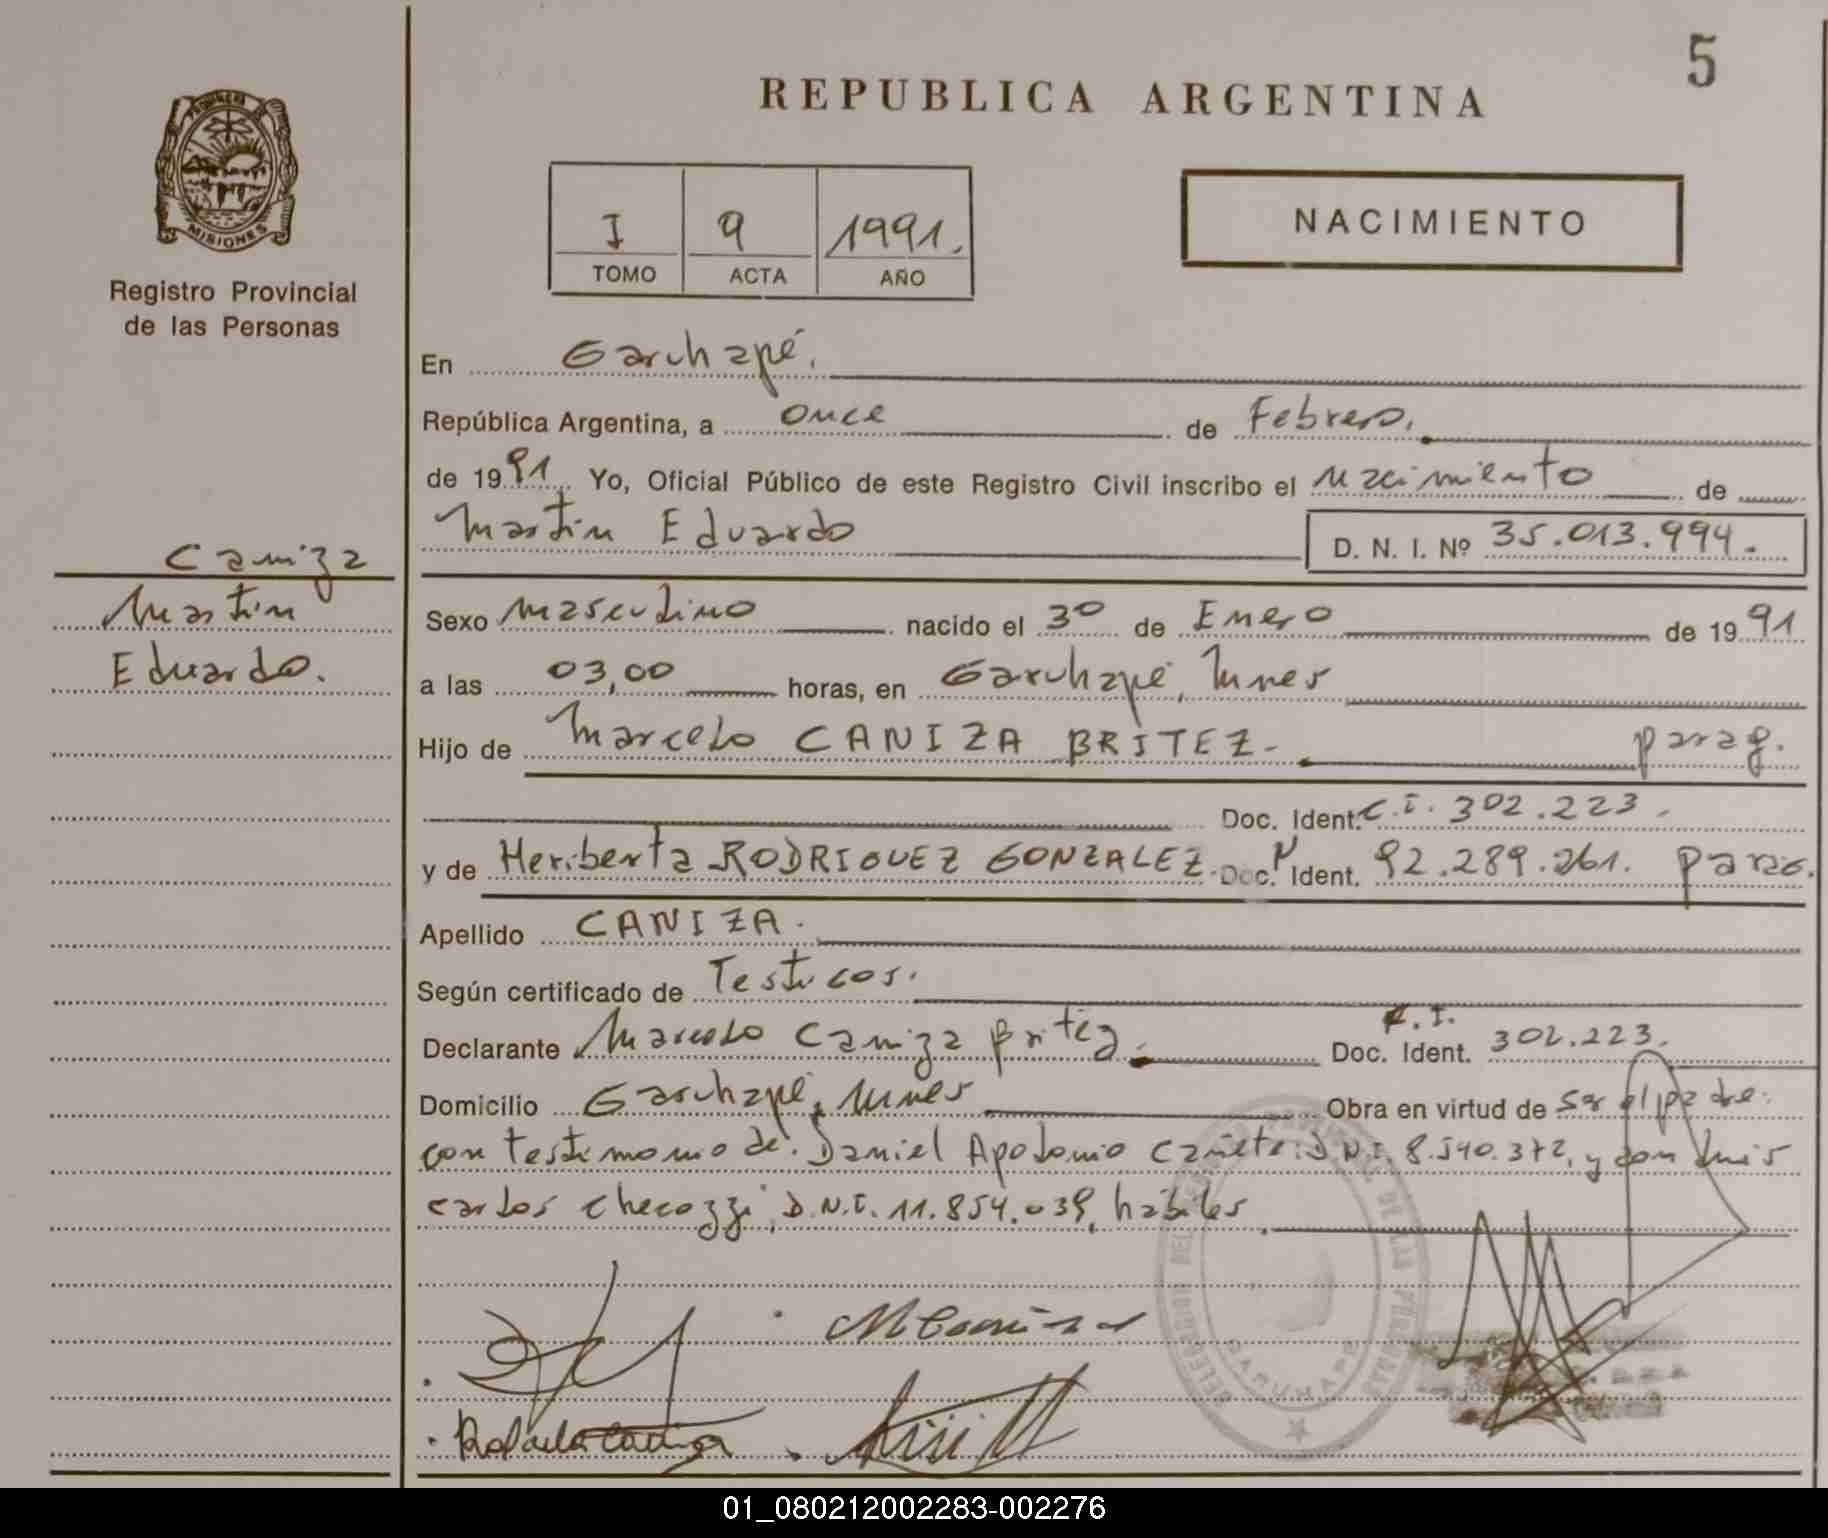 5
REPUBLICA ARGENTINA
PROVINCIA
MISIONES
Registro Provincial
de las Personas
I 9 1991.
TOMO ACTA AÑO
NACIMIENTO
En Garuhapé.
República Argentina, a once de Febrero.
de 1991 Yo, Oficial Público de este Registro Civil inscribo el nacimiento de
Martin Eduardo D. N. I. Nº 35.013.994.
Caniza
Martin
Eduardo.
Sexo masculino nacido el 30 de Enero de 1991
a las 03,00 horas, en Garuhapé, Mnes
Hijo de Marcelo CANIZA BRITEZ- parag.
Doc. Ident. C.I. 302.223.
y de Heriberta RODRIGUEZ GONZALEZ. Doc. Ident. 92.289.261. parag.
Apellido CANIZA.
Según certificado de Testigos.
Declarante Marcelo Caniza Britez. Doc. Ident. C.I. 302.223.
Domicilio Garuhapé, Mnes Obra en virtud de ser el padre.
con testimonio de: Daniel Apolonio Cañete: D.N.I. 8.540.372, y con Luis
carlos Checozzi, D.N.I. 11.854.039, hábiles.
M Caniza
GARUHAPE
01_080212002283-002276